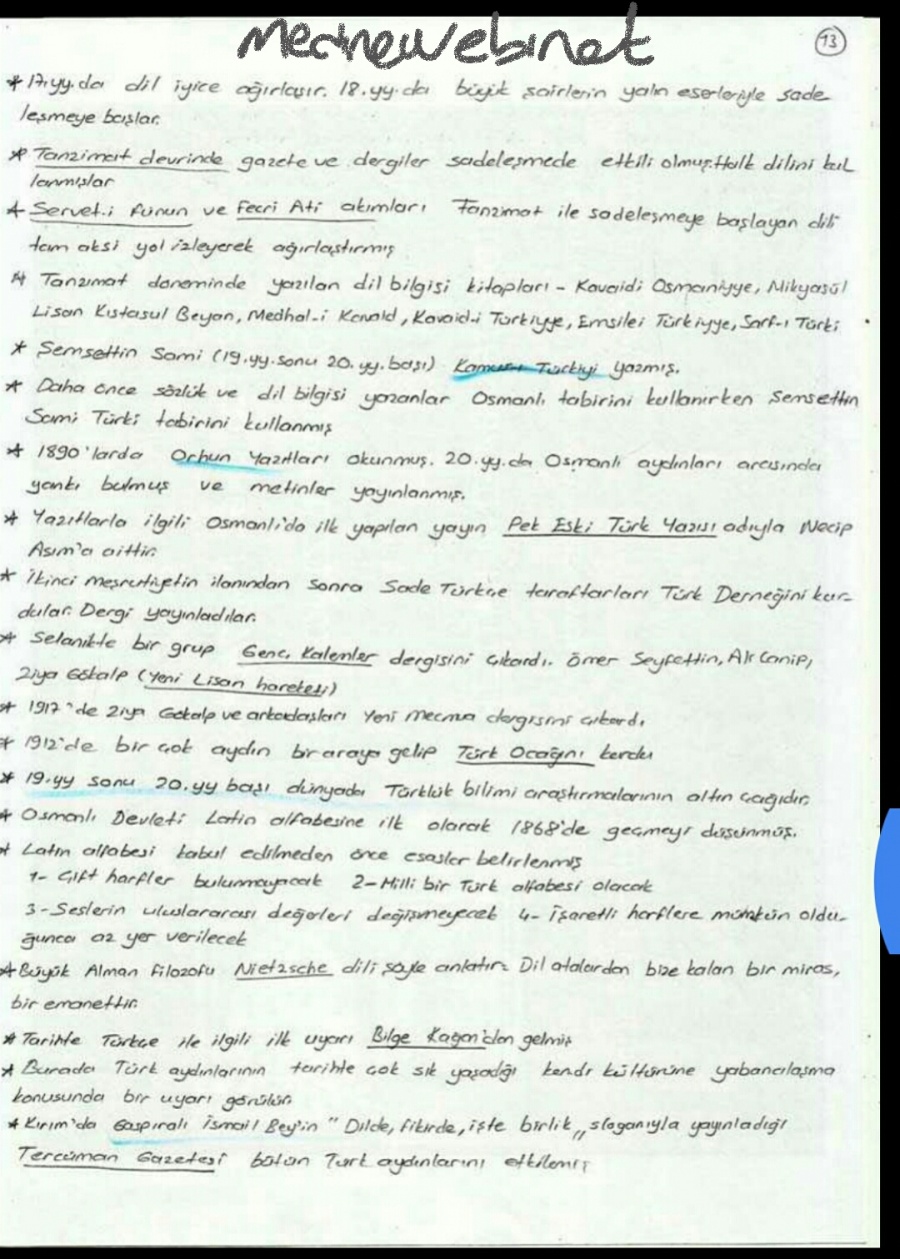 mednewebinot
13
* 17.yy.da dil iyice ağırlaşır. 18.yy.da büyük şairlerin yalın eserleriyle sade
leşmeye başlar.
* Tanzimat devrinde gazete ve dergiler sadeleşmede etkili olmuş. Halk dilini kul
lanmışlar
* Servet-i Fünun ve Fecri Ati akımları Tanzimat ile sadeleşmeye başlayan dili
tam aksi yol izleyerek ağırlaştırmış
* Tanzimat döneminde yazılan dil bilgisi kitapları - Kavaidi Osmaniyye, Mikyasül
Lisan Kıstasul Beyan, Medhal-i Kavaid, Kavaid-i Türkiyye, Emsilei Türkiyye, Sarf-ı Türki
* Şemsettin Sami (19.yy.sonu 20.yy.başı) Kamus-ı Türkiyi yazmış.
* Daha önce sözlük ve dil bilgisi yazanlar Osmanlı tabirini kullanırken Şemsettin
Sami Türki tabirini kullanmış
* 1890'larda Orhun Yazıtları okunmuş. 20.yy.da Osmanlı aydınları arasında
yankı bulmuş ve metinler yayınlanmış.
* Yazıtlarla ilgili Osmanlı'da ilk yapılan yayın Pek Eski Türk Yazısı adıyla Necip
Asım'a aittir.
* İkinci meşrutiyetin ilanından sonra Sade Türkçe taraftarları Türk Derneğini kur-
dular. Dergi yayınladılar.
* Selanikte bir grup Genç Kalemler dergisini çıkardı. Ömer Seyfettin, Ali Canip,
Ziya Gökalp (Yeni Lisan hareketi)
* 1917'de Ziya Gökalp ve arkadaşları Yeni Mecmua dergisini çıkardı.
* 1912'de bir çok aydın bir araya gelip Türk Ocağını kurdu
* 19.yy sonu 20.yy başı dünyada Türklük bilimi araştırmalarının altın çağıdır.
* Osmanlı Devleti Latin alfabesine ilk olarak 1868'de geçmeyi düşünmüş.
* Latin alfabesi kabul edilmeden önce esaslar belirlenmiş
1- Çift harfler bulunmayacak 2- Milli bir Türk alfabesi olacak
3- Seslerin uluslararası değerleri değişmeyecek 4- İşaretli harflere mümkün oldu-
ğunca az yer verilecek
* Büyük Alman Filozofu Nietzsche dili şöyle anlatır: Dil atalardan bize kalan bir miras,
bir emanettir.
* Tarihte Türkçe ile ilgili ilk uyarı Bilge Kağan'dan gelmiş
* Burada Türk aydınlarının tarihte çok sık yaşadığı kendi kültürüne yabancılaşma
konusunda bir uyarı görülür.
* Kırım'da Gaspıralı İsmail Bey'in "Dilde, fikirde, işte birlik" sloganıyla yayınladığı
Tercüman Gazetesi bütün Türk aydınlarını etkilemiş